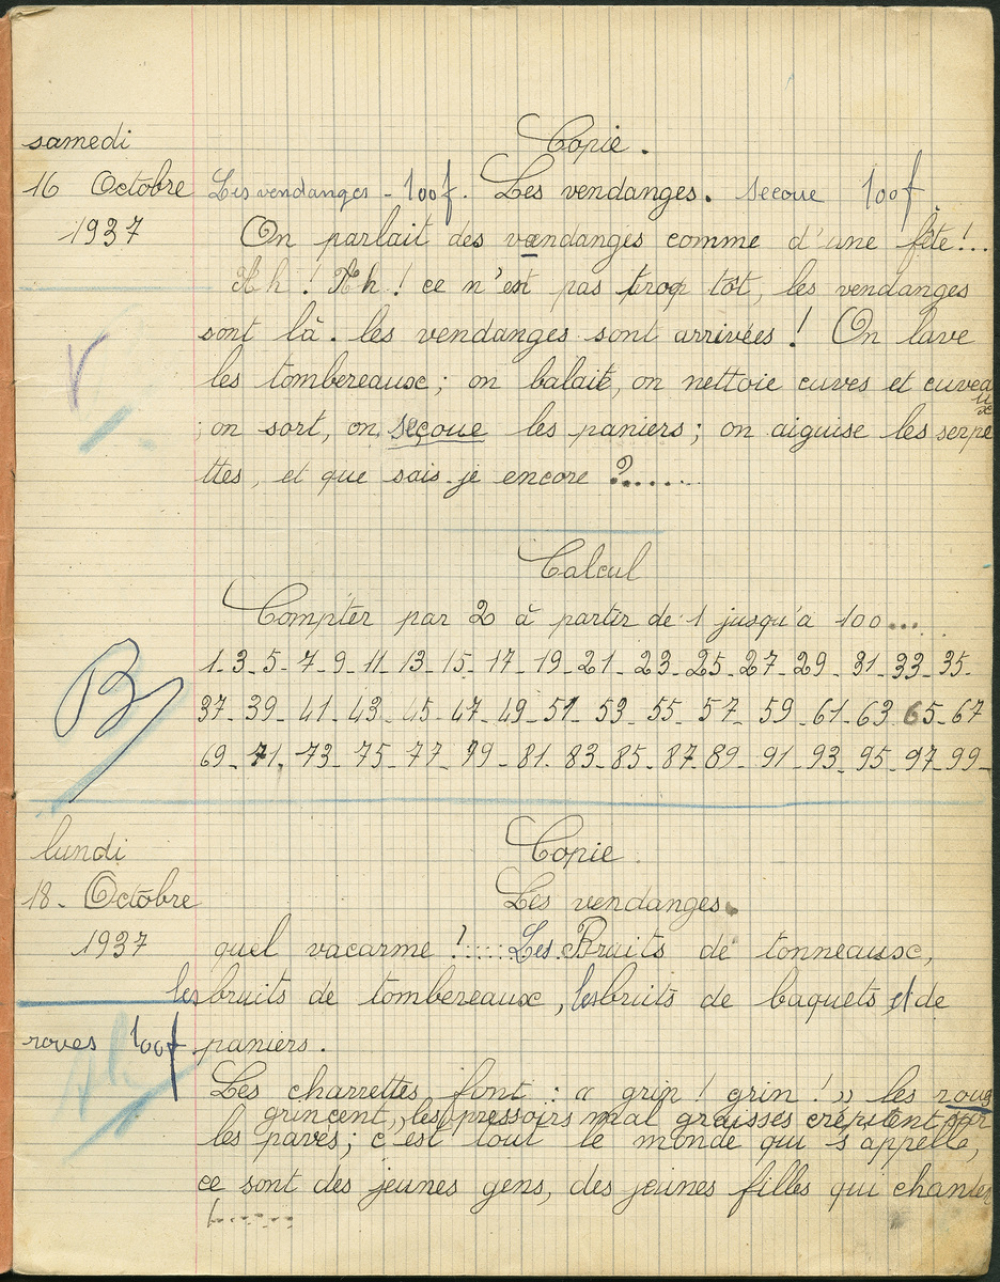 samedi
Copie.
16 Octobre Les vendanges - 100 f. Les vendanges. secoue 100 f
1937 On parlait des vændanges comme d'une fête!..
Ah! Ah! ce n'est pas trop tôt, les vendanges
sont là. les vendanges sont arrivées! On lave
les tombereaux; on balait, on nettoie cuves et cuvea
ux
; on sort, on secoue les paniers; on aiguise les serpe
ttes, et que sais-je encore ?......
Calcul
Compter par 2 à partir de 1 jusqu'à 100...
1-3-5-7-9-11-13-15-17-19-21-23-25-27-29-31-33-35-
B
37-39-41-43-45-47-49-51-53-55-57-59-61-63-65-67
69-71-73-75-77-79-81-83-85-87-89-91-93-95-97-99-
lundi
Copie
18. Octobre Les vendanges.
1937 quel vacarme !..... Les Bruits de tonneaux,
les bruits de tombereaux, les bruits de baquets et de
roues 100 f paniers.
Les charrettes font : « grin ! grin ! » les roues
grincent, les pressoirs mal graissés crépitent sur
les pavés; c'est tout le monde qui s'appelle,
ce sont des jeunes gens, des jeunes filles qui chantent